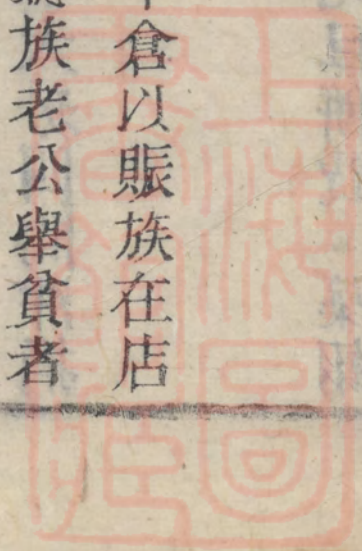 倉以賑族在店
族老公舉貧者
上海圖
書館藏